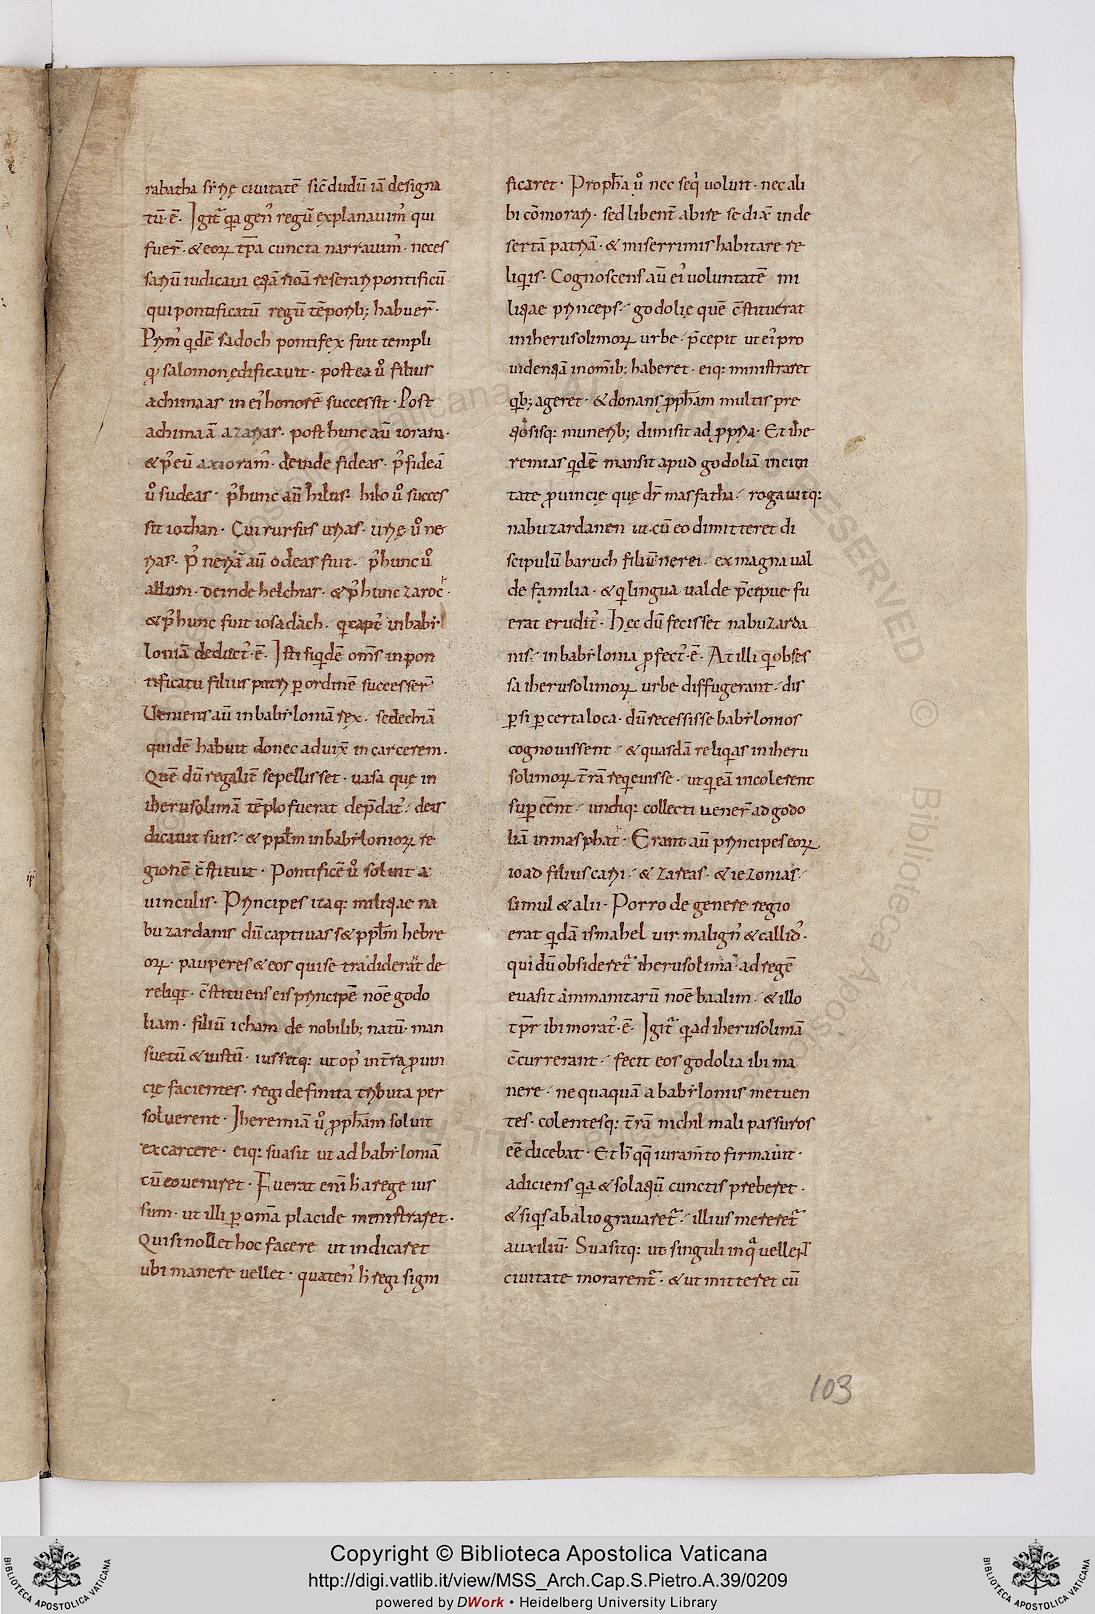 rabatha syrię ciuitatē sic̄ dudū iā designa
tū·ē· Igit̃ q̇a geñ regū explanauim᷒ qui
fuer̄· & eoꝝ tp̄a cuncta narrauim᷒· neces
sariū iudicaui &iā noīa reserari pontificū
qui pontificatū regū tēporib; habuer̄·
Prim᷒ q̇dē sadoch pontifex fuit templi
qđ salomon ędificauit· post ea ů filius
achimaas in ei᷒ honorē successit· Post
achimaā azarias· post hunc aū ioram·
& p᷒ eū axioram᷒· deinde fideas· p᷒ fideā
ů sudeas· p᷒ hunc aū hilus· hilo ů succes
sit iothan· Cui rursus urias· urię ů ne
rias· P᷒ neriā aū odeas fuit· p᷒ hunc ů
allum· deinde helchias· & p᷒ hunc zaroc·
& p᷒ hunc fuit iosadach· qui capt᷒ in babi
loniā deduct᷒·ē· Isti siq̇dē om̄s in pon
tificatu filius patri ꝑ ordinē successer̄
Veniens aū in babiloniā rex· sedechiā
quidē habuit donec aduix̄ in carcerem·
Quē dū regaliē sepellisset· uasa quę in
iherusolimā tēplo fuerat depdat᷒· deis
dicauit suis· & pp̄lm in babilonioꝝ re
gionē c̄stituit· Pontificē ů soluit a
uinculis· Principes itaq; militiae na
buzardanis dū captiuas s& pp̄lm hebre
oꝝ· pauperes & eos qui se tradiderāt de
reliq̇t· c̄stituens eis principē noē godo
liam· filiū icham de nobilib; natū· man
suetū & iustū· iussitq; ut op᷒ in tr̄a ꝓuin
cię facientes· regi definita tributa per
soluerent· Iheremiā ů ꝓph̄am soluit
ex carcere· eiq; suasit ut ad babiloniā
cū eo ueniret· Fuerat enī h̄ a rege ius
sum· ut illi ꝑ omīa placide ministraret·
Qui si noll& hoc facere ut indicaret
ubi manere uellet· quaten᷒ h̄ regi signi
ficaret· Proph̄a ů nec seq̇ uoluit· nec ali
bi cōmorari· sed libent̄ abire se dix̄ in de
sertā patriā· & miserrimis habitare re
liq̇is· Cognoscens aū ei᷒ uoluntatē mi
litiae princeps· godolię quē c̄stituerat
in iherusolimoꝝ urbe· p̄cepit ut ei᷒ pro
uidentiā in omīb; haberet· eiq; ministraret
q̇b; ageret· & donans ꝓph̄am multis pre
tiosisq; munerib; dimisit ad ꝓpria· Et ihe
remias q̇dē mansit apud godoliā in ciui
tate ꝓuincię quę dr̄ masfatha· rogauitq;
nabuzardanen ut cū eo dimitteret di
scipulū baruch filiū nerei· ex magna ual
de familia· & q̇ lingua ualde p̄cipue fu
erat erudit᷒· Hęc dū fecisset nabuzarda
nis· in babilonia ꝓfect᷒·ē· At illi q̇ obses
sa iherusolimoꝝ urbe diffugerant· dis
ꝑsi ꝑ certa loca· dū recessisse babilonios
cognouissent· & quasdā reliq̇as in iheru
solimoꝝ tr̄ā req̇euisse· ut q̇ eā incolerent
suꝑ eēnt· undiq; collecti uener̄ ad godo
liā in masphat· Erant aū principes eoꝝ
ioad filius carii· & zareas· & iezonias·
simul & alii· Porro de genere regio
erat q̇dā ismahel uir malign᷒ & callid᷒·
qui dū obsideret᷒ iherusolima· ad regē
euasit ammanitarū noē baalim· & illo
tp̄r ibi morat᷒·ē· Igit̃ q̇ ad iherusolimā
c̄currerant· fecit eos godolia ibi ma
nere· nequaquā a babiloniis metuen
tes· colentesq; tr̄ā nichil mali passuros
eē dicebat· Et h̄ q̇q̇ iuram̄to firmauit·
adiciens q̇a & solatiū cunctis preberet·
& siq̇s ab alio grauaret̃· illius mereret̃
auxiliū· Suasitq; ut singuli in q̇ uellent
ciuitate morarent̃· & ut mitteret cū
103
Copyright © Biblioteca Apostolica Vaticana
http://digi.vatlib.it/view/MSS_Arch.Cap.S.Pietro.A.39/0209
powered by DWork • Heidelberg University Library
BIBLIOTECA APOSTOLICA VATICANA
BIBLIOTECA APOSTOLICA VATICANA